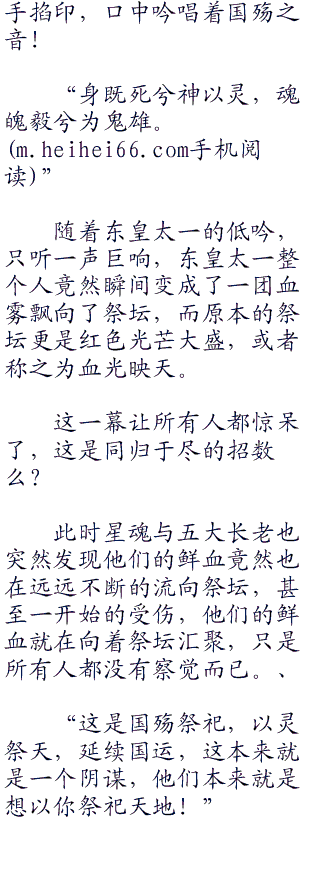 手掐印，口中吟唱着国殇之
音！
“身既死兮神以灵，魂
魄毅兮为鬼雄。
(m.heihei66.com手机阅
读)”
随着东皇太一的低吟，
只听一声巨响，东皇太一整
个人竟然瞬间变成了一团血
雾飘向了祭坛，而原本的祭
坛更是红色光芒大盛，或者
称之为血光映天。
这一幕让所有人都惊呆
了，这是同归于尽的招数
么？
此时星魂与五大长老也
突然发现他们的鲜血竟然也
在远远不断的流向祭坛，甚
至一开始的受伤，他们的鲜
血就在向着祭坛汇聚，只是
所有人都没有察觉而已。、
“这是国殇祭祀，以灵
祭天，延续国运，这本来就
是一个阴谋，他们本来就是
想以你祭祀天地！”